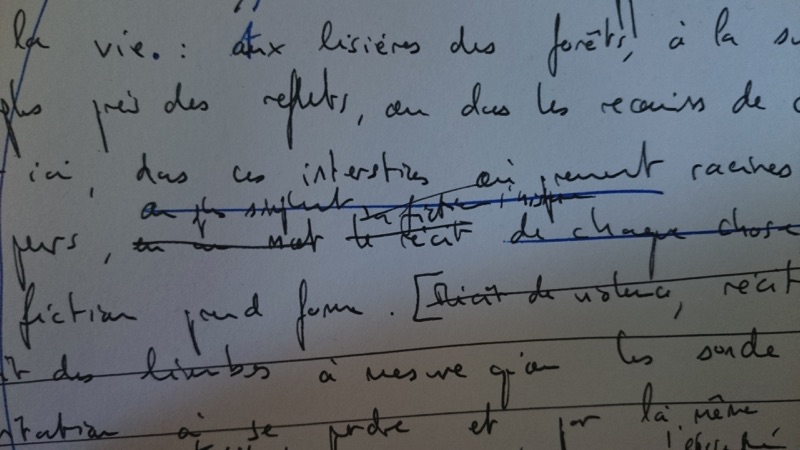 la vie. : aux lisières des forêts, à la su
plus près des reflets, ou dans les recoins de
ici, dans ces interstices où prennent racines
on su
peurs, en un mot le récit de chaque chose
fiction prend forme. [Récit de violence, récit
t des limbes à mesure qu'on les sonde
ntation à se perdre et par là même